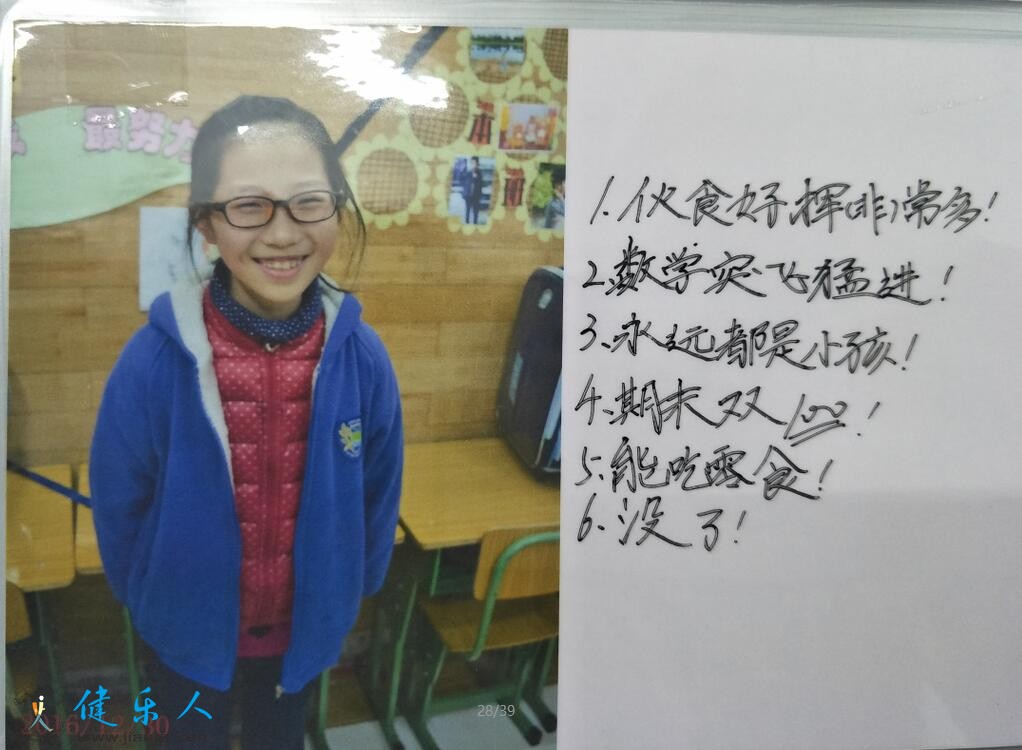 最努力
本
1.伙食好挥(非)常多!
2.数学突飞猛进!
3.永远都是小孩!
4.期末双100!
5.能吃零食!
6.没了!
健乐人
28/39
2016/12/30